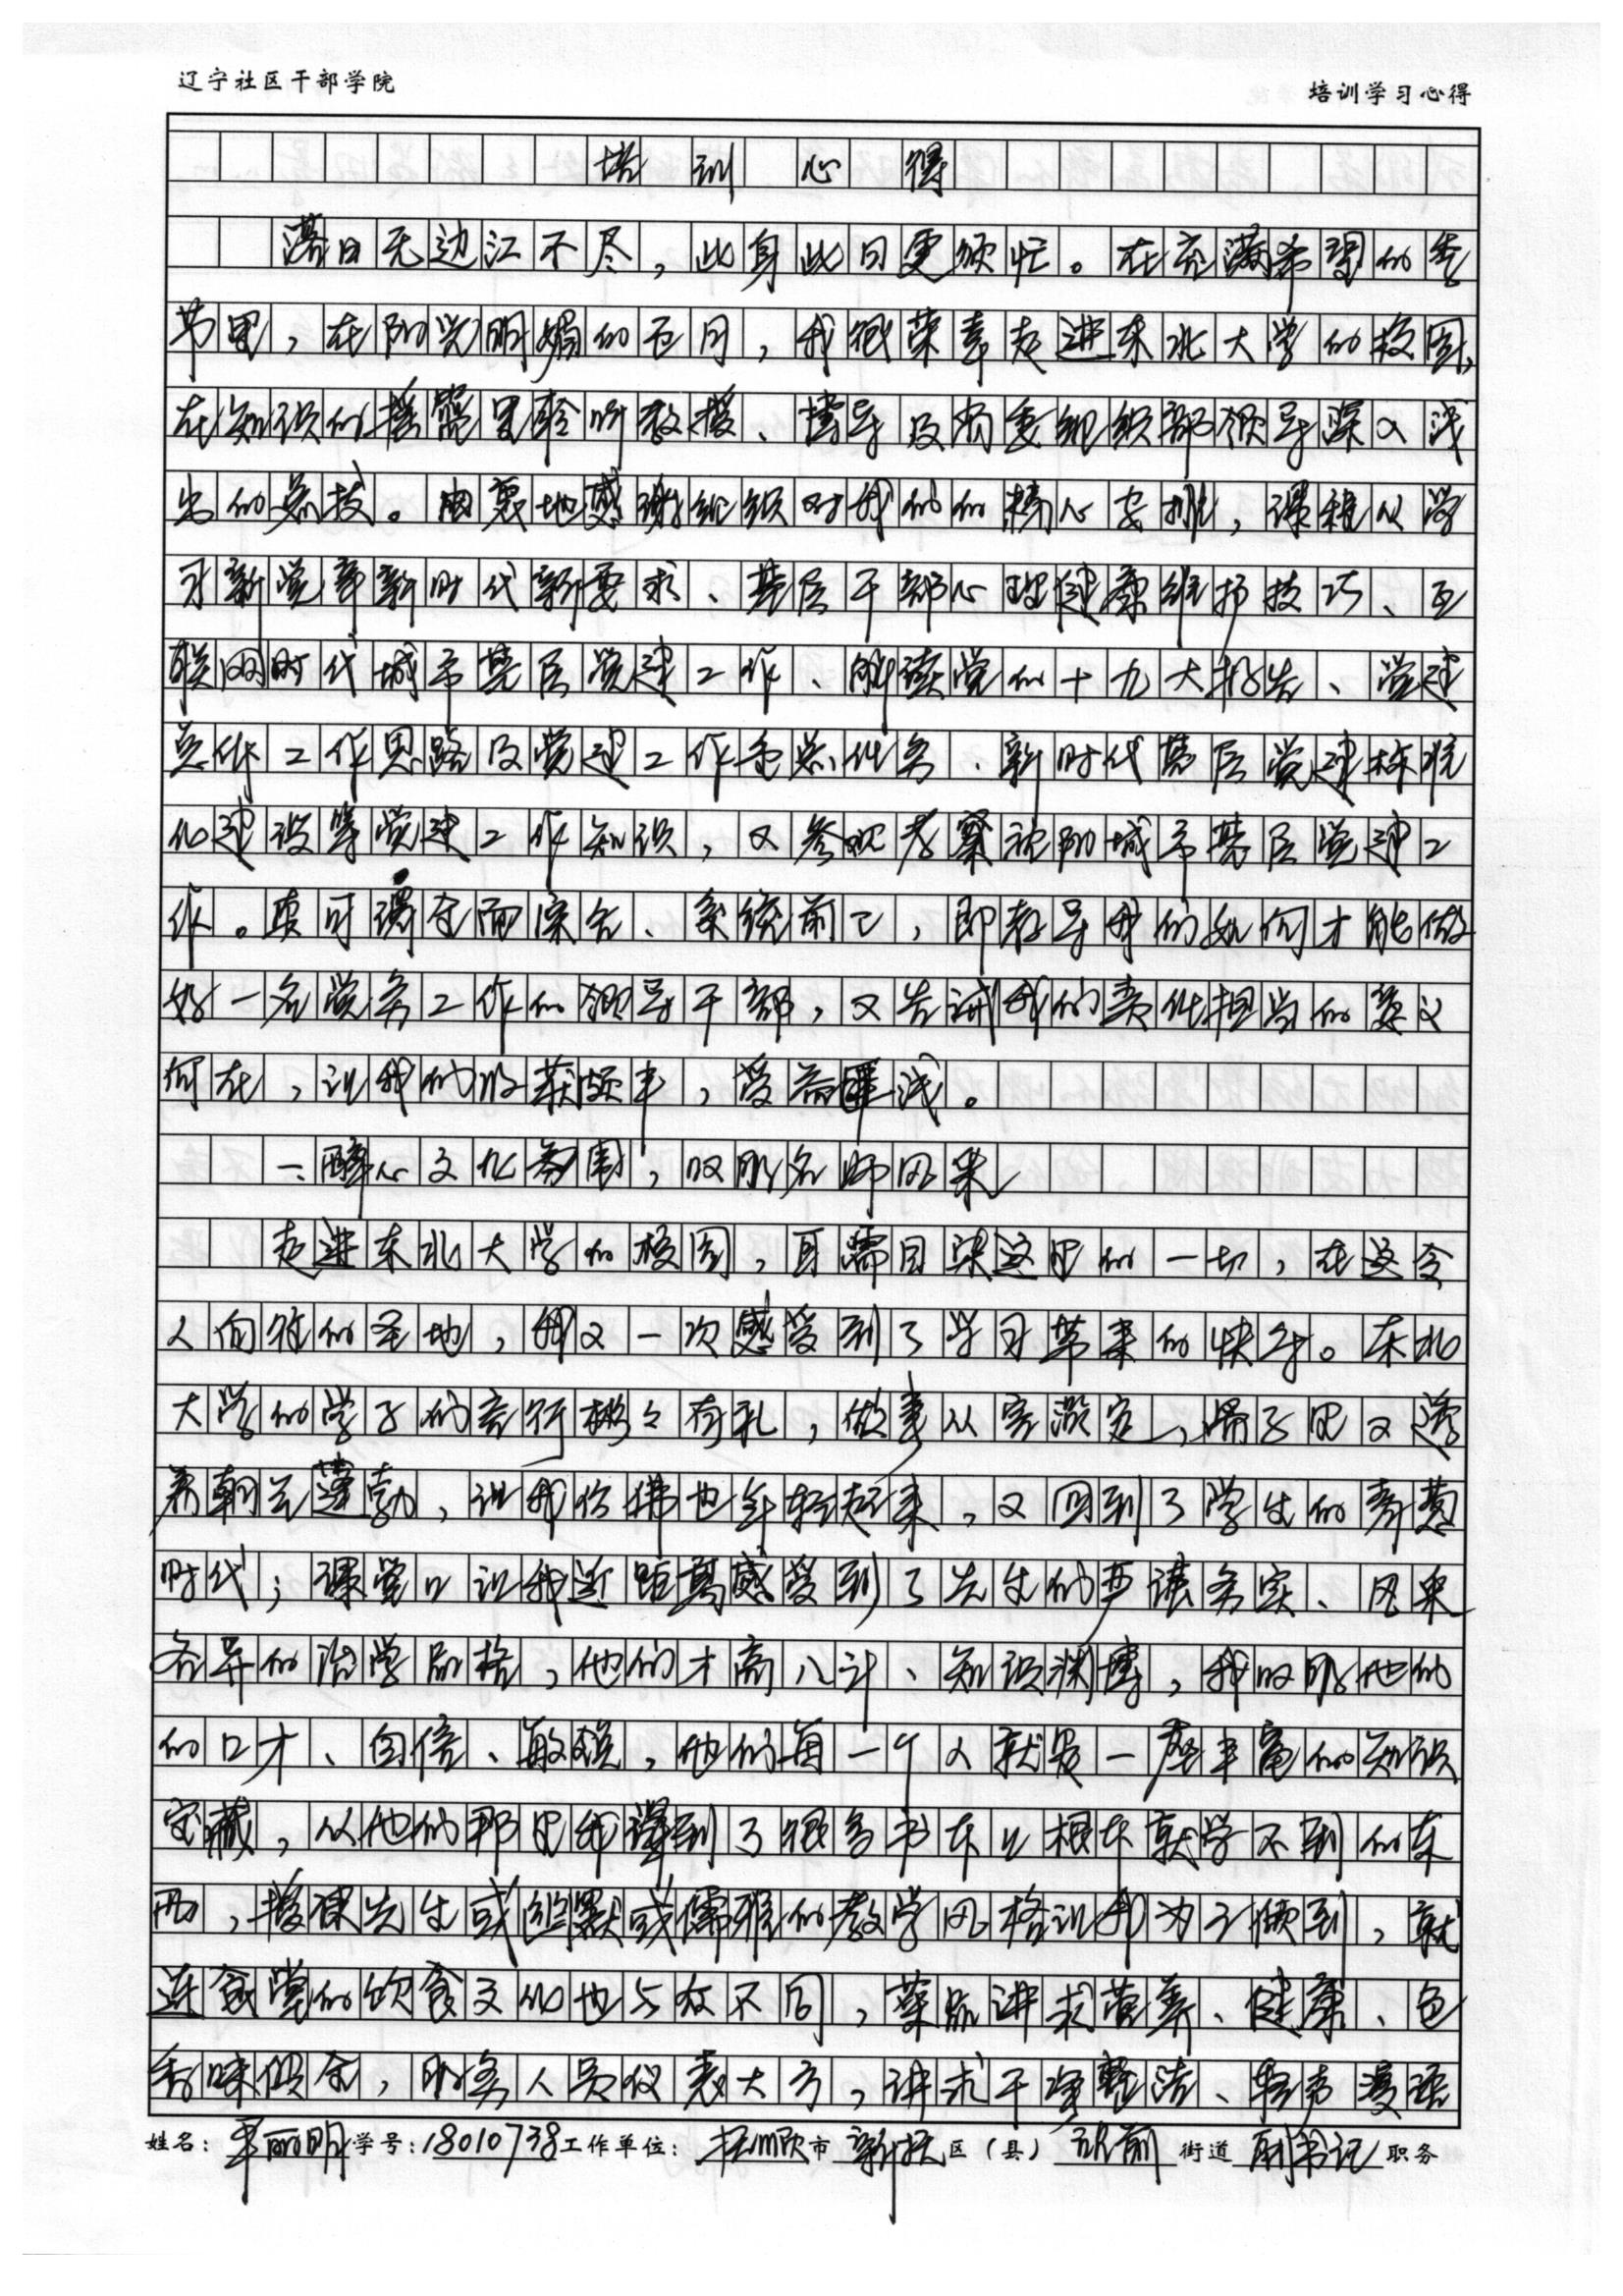 辽宁社区干部学院
培训学习心得
培训心得
满目无边江不尽，此身此日更须忙。在充满希望的季
节里，在阳光明媚的五月，我很荣幸走进东北大学的校园，
在知识的摇篮里聆听教授、博导及省委组织部领导深入浅
出的教授。由衷地感谢组织对我们的精心安排，课程从学
习新党章新时代新要求、基层干部心理健康维护技巧、互
联网时代城市基层党建工作、解读党的十九大报告、党建
总体工作思路及党建工作重点任务、新时代基层党建标准
化建设等党建工作知识，又参观考察沈阳城市基层党建工
作。真可谓全面综合、系统前卫，即教导我们如何才能做
好一名党务工作的领导干部，又告诫我们责任担当的意义
何在，让我们收获颇丰，受益匪浅。
一、醉心文化氛围，叹服名师风采
走进东北大学的校园，耳濡目染这里的一切，在这令
人向往的圣地，我又一次感受到了学习带来的快乐。东北
大学的学子们言行彬彬有礼，做事从容淡定，骨子里又透
着朝气蓬勃，让我仿佛也年轻起来，又回到了学生的青葱
时代；课堂上让我近距离感受到了先生们严谨务实、风采
各异的治学风格，他们才高八斗、知识渊博，我叹服他们
的口才、自信、敏锐，他们每一个人就是一座丰富的知识
宝藏，从他们那里我得到了很多书本上根本就学不到的东
西，授课先生或幽默或儒雅的教学风格让我为之倾到，就
连食堂的饮食文化也与众不同，菜品讲求营养、健康、色
香味俱全，服务人员仪表大方，讲求干净整洁、轻声漫语
姓名：丽明 学号：18010738 工作单位：抚顺市 新抚 区（县） 站前 街道 副书记 职务